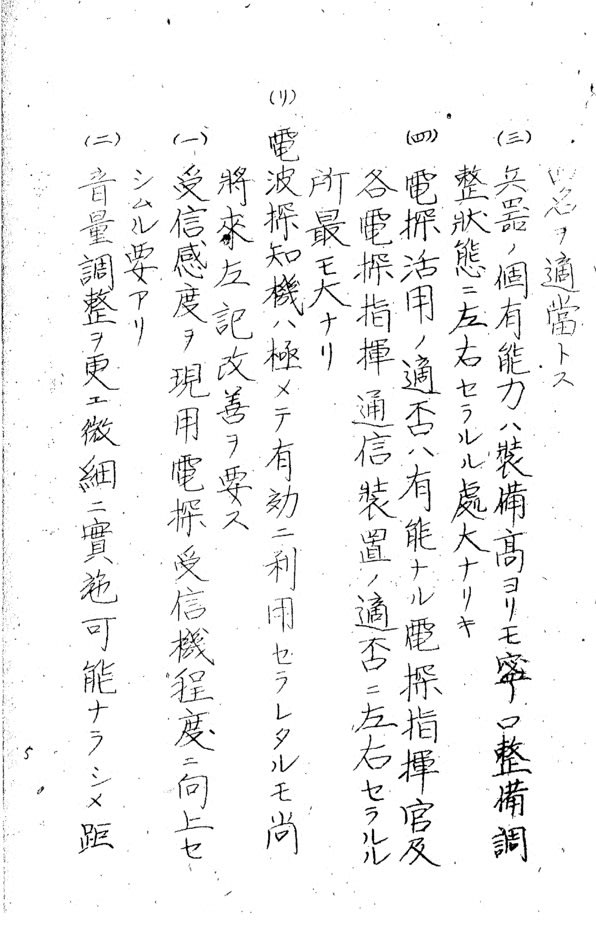 ヲ適當トス
(三) 兵器ノ個有能力ハ裝備高ヨリモ寧ロ整備調
整狀態ニ左右セラルル處大ナリキ
(四) 電探活用ノ適否ハ有能ナル電探指揮官及
各電探指揮通信裝置ノ適否ニ左右セラルル
所最モ大ナリ
(リ) 電波探知機ハ極メテ有効ニ利用セラレタルモ尚
將來左記改善ヲ要ス
(一) 受信感度ヲ現用電探受信機程度ニ向上セ
シムル要アリ
(二) 音量調整ヲ更エ微細ニ實施可能ナラシメ距
5